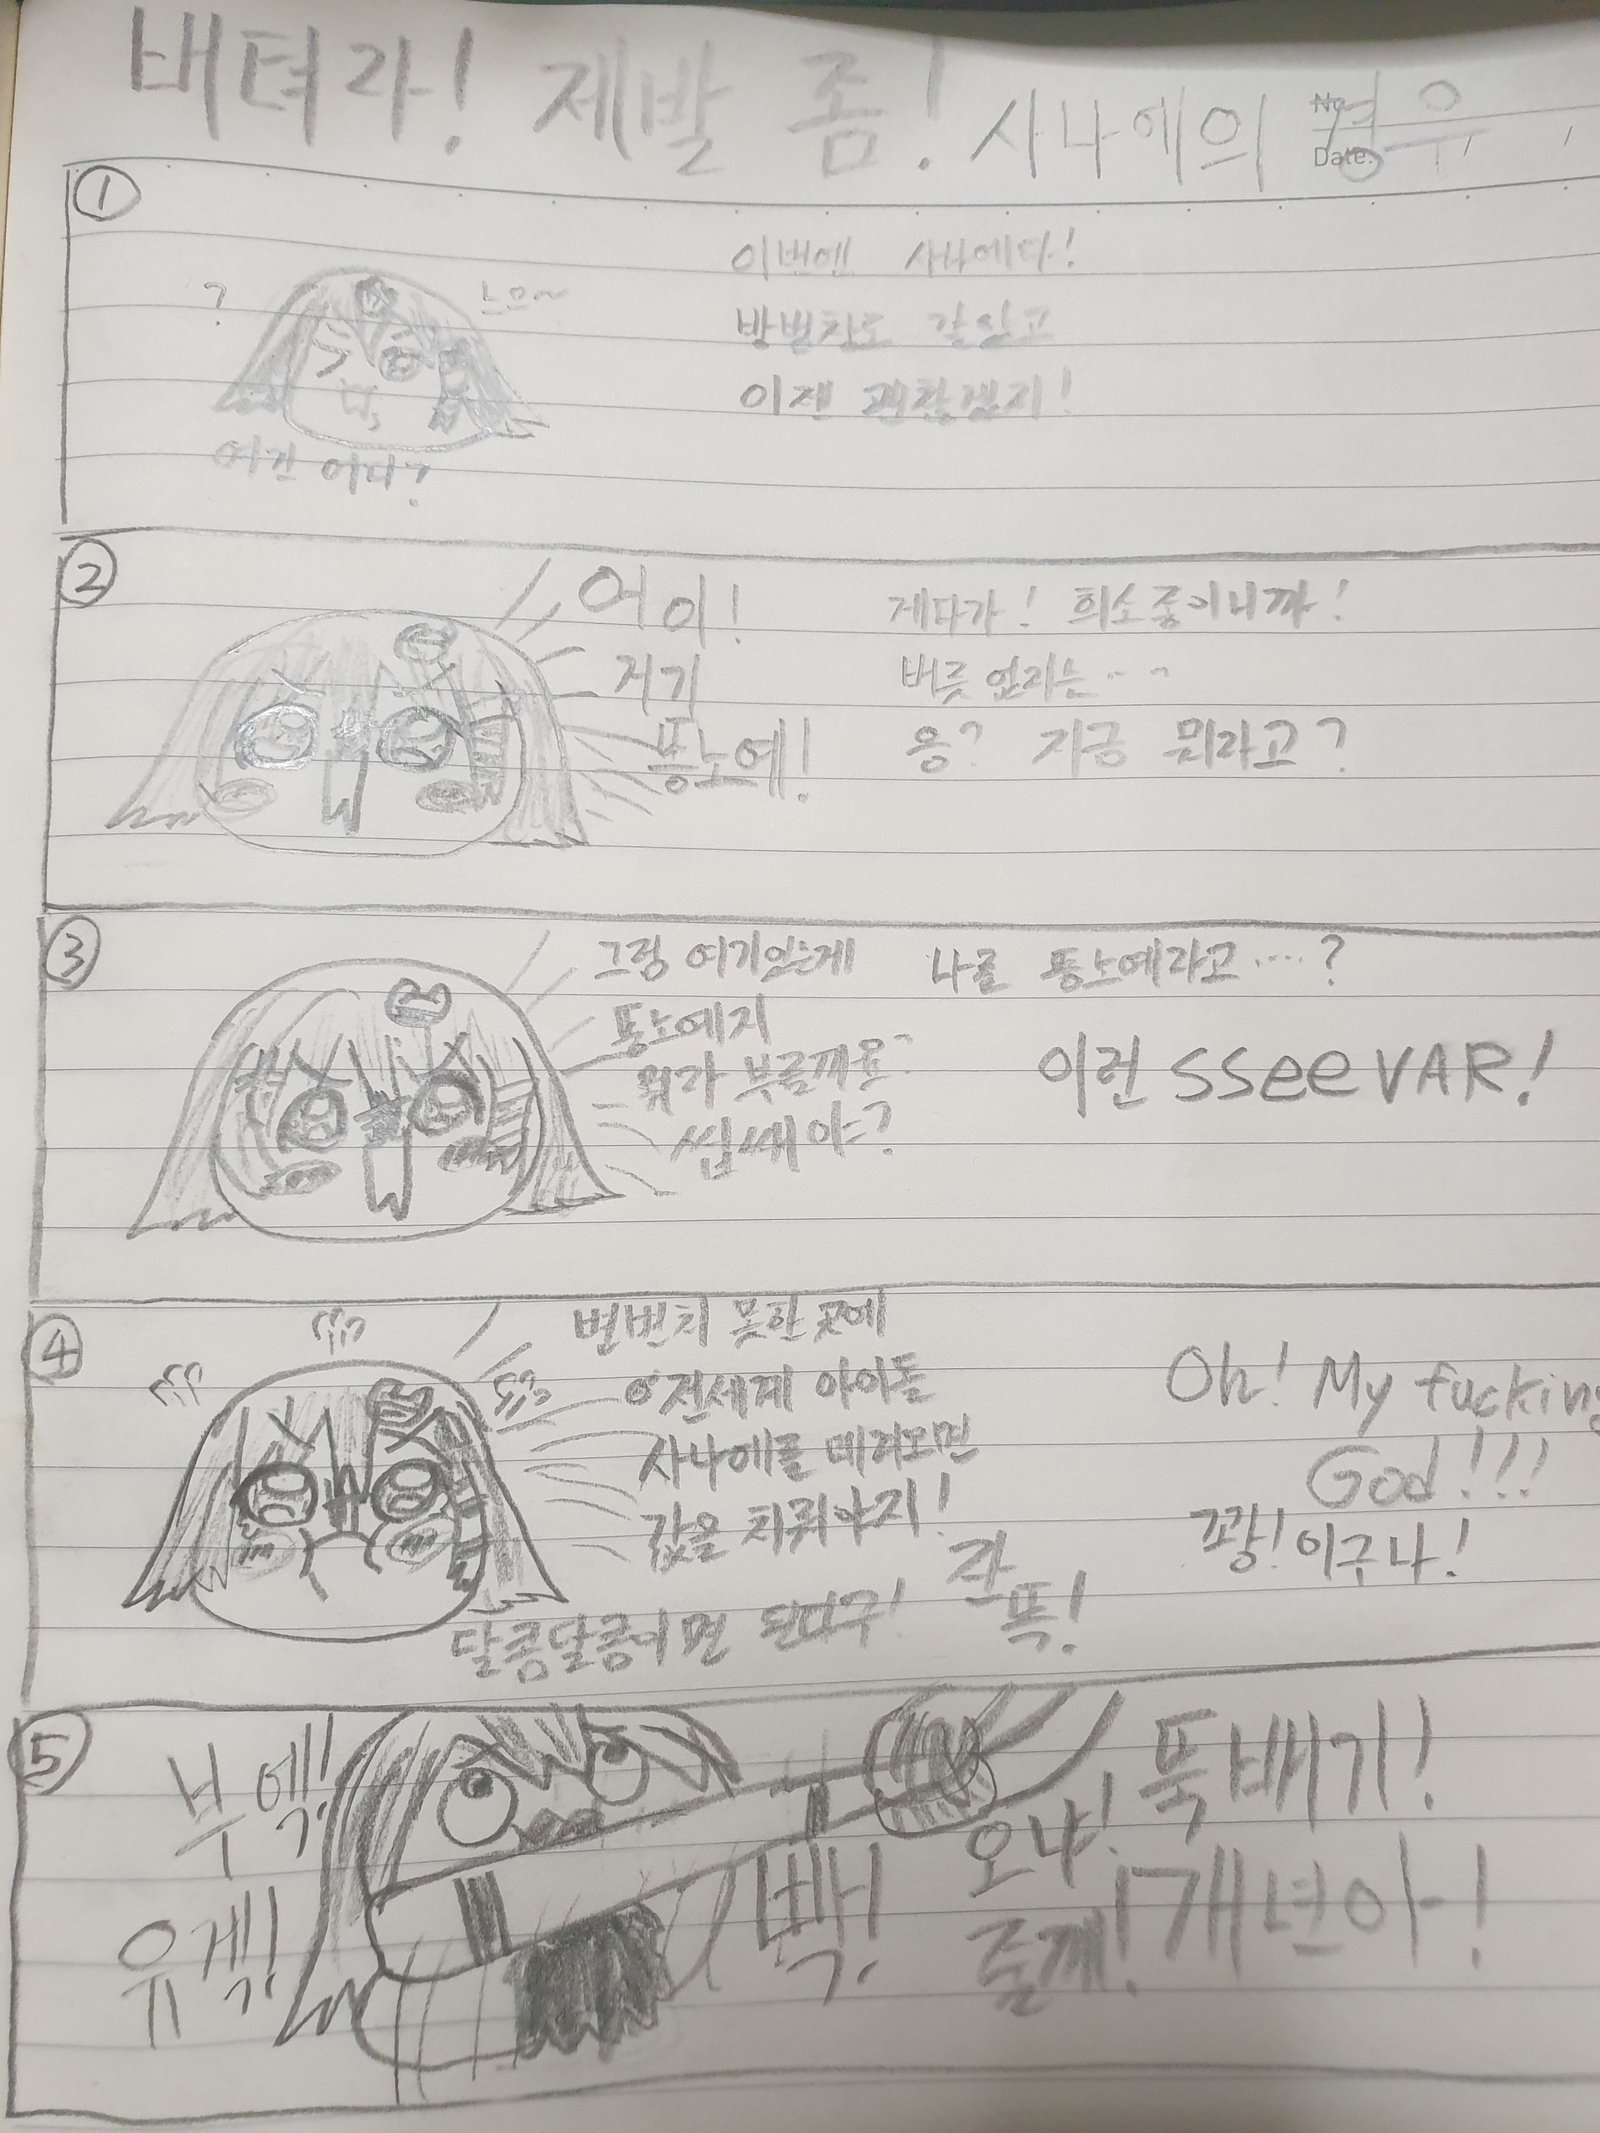 버텨라! 제발 좀! 사나에의 경우
No.
Date.
①
?
느으~
여긴 어디?
이번엔 사나에다!
방범창도 갈았고
이젠 괜찮겠지!
②
어이!
저기
똥노예!
게다가! 희소종이니까!
버릇 없지는‥
응? 지금 뭐라고?
③
그렁 여기있는게
똥노예지
뭐가 부를까요~
씹쌔야?
나를 똥노예라고····?
이런 sseeVAR!
④
변변치 못한 곳에
전세계 아이돌
사나에를 데려오면
값을 치뤄야지!
달콩달콩이면 된다구!
각
똑!
Oh! My fucking
God!!!
꽝! 이구나!
⑤
부엑!
유겍!
빡!
오냐! 뚝배기!
줄께! 개년아!